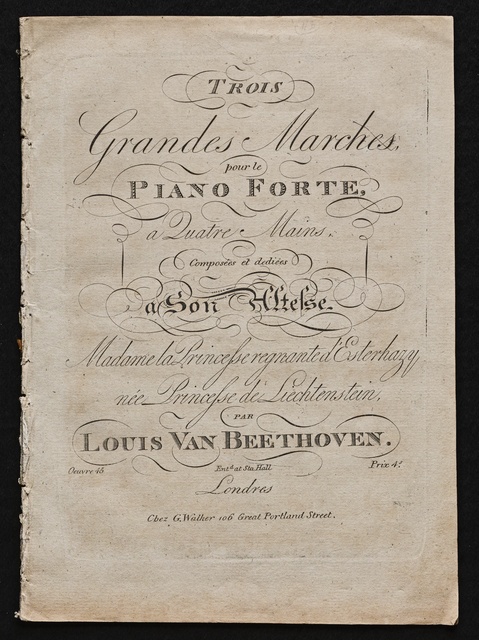 TROIS
Grandes Marches,
pour le
PIANO FORTE,
a Quatre Mains,
Composées et dediées
a Son Altesse
Madame la Princesse regnante d'Esterhazy
née Princesse de Liechtenstein,
PAR
LOUIS VAN BEETHOVEN.
Oeuvre 45 Ent.d at Sta. Hall Prix 4s
Londres
Chez G. Walker 106 Great Portland Street.